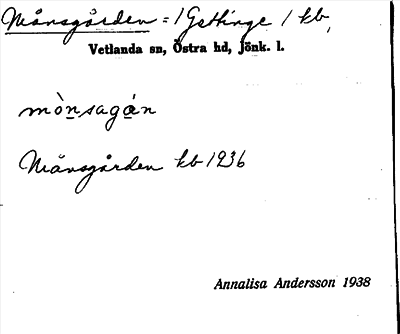 Månsgården = 1 Gethinge 1 kb,
Vetlanda sn, Östra hd, Jönk. l.
mònsagán
Månsgården kb 1936
Annalisa Andersson 1938